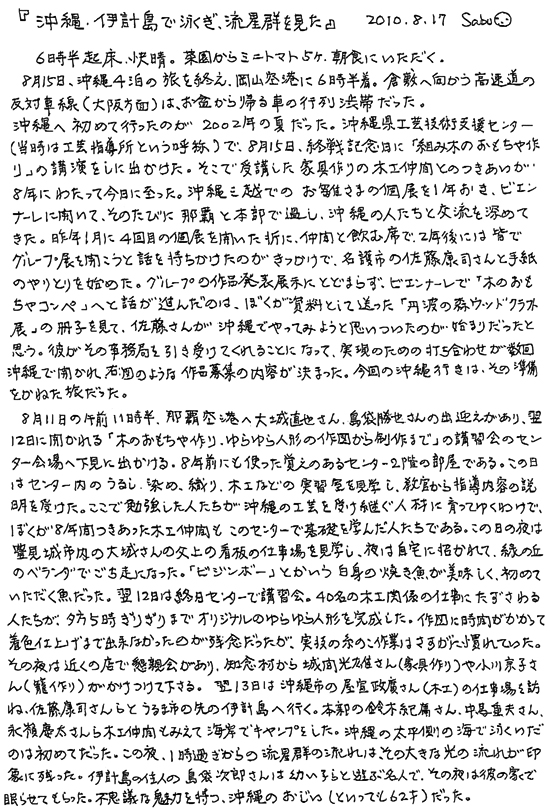 『沖縄・伊計島で泳ぎ、流星群を見た』 2010.8.17 Sabu
6時半起床、快晴。菜園からミニトマト5ヶ、朝食にいただく。
8月15日、沖縄4泊の旅を終え、岡山空港に6時半着。倉敷へ向かう高速道の
反対車線(大阪方面)は、お盆から帰る車の行列渋滞だった。
沖縄へ初めて行ったのが2002年の夏だった。沖縄県工芸技術支援センター
(当時は工芸指導所という呼称)で、8月15日、終戦記念日に「組み木のおもちゃ作
り」の講演をしに出かけた。そこで受講した家具作りの木工仲間とのつきあいが
8年にわたって今日に至った。沖縄三越でのお雛さまの個展を1年おき、ビエン
ナーレに開いて、そのたびに那覇と本部で過し、沖縄の人たちと交流を深めて
きた。昨年1月に4回目の個展を開いた折に、仲間と飲む席で、2年後には皆で
グループ展を開こうと話を持ちかけたのがきっかけで、名護市の佐藤康司さんと手紙
のやりとりを始めた。グループの作品発表展示にとどまらず、ビエンナーレで「木のおも
ちゃコンペ」へと話が進んだのは、ぼくが資料として送った「丹波の森ウッドクラフト
展」の冊子を見て、佐藤さんが沖縄でやってみようと思いついたのが始まりだったと
思う。彼がその事務局を引き受けてくれることになって、実現のための打ち合わせが数回
沖縄で開かれ、右図のような作品募集の内容が決まった。今回の沖縄行きは、その準備
をかねた旅だった。
8月11日の午前11時半、那覇空港へ大城直也さん、島袋勝也さんの出迎えがあり、翌
12日に開かれる「木のおもちゃ作り、ゆらゆら人形の作図から制作まで」の講習会のセン
ター会場へ下見に出かける。8年前にも使った覚えのあるセンター2階の部屋である。この日
はセンター内のうるし、染め、織り、木工などの実習室を見学し、教官から指導内容の説
明を受けた。ここで勉強した人たちが沖縄の工芸を受け継ぐ人材に育ってゆくわけで、
ぼくが8年間つきあった木工仲間もこのセンターで基礎を学んだ人たちである。この日の夜は
豊見城市内の大城さんの父上の看板の仕事場を見学し、夜は自宅に招かれて、緑の丘
のベランダでごち走になった。「ビジンボー」とかいう白身の焼き魚が美味しく、初めて
いただく魚だった。翌12日は終日センターで講習会。40名の木工関係の仕事にたずさわる
人たちが、夕方5時ぎりぎりまでオリジナルのゆらゆら人形を完成した。作図に時間がかかって
着色仕上げまで出来なかったのが残念だったが、実技の糸のこ作業はさすがに慣れていた。
その夜は近くの店で懇親会があり、知念村から城間光雄さん(家具作り)や小川京子さ
ん(籠作り)がかけつけて下さる。翌13日は沖縄市の屋宜政廣さん(木工)の仕事場を訪
ね、佐藤康司さんらとうるま市の先の伊計島へ行く。本部の鈴木紀庸さん、中島重夫さん、
永嶺慶太さんら木工仲間もみえて海岸でキャンプをした。沖縄の太平側の海で泳いだ
のは初めてだった。この夜、1時過ぎからの流星群の流れは、その大きな光の流れが印
象に残った。伊計島の住人の島袋次郎さんは幼い子らと遊ぶ名人で、その夜は彼の家で
眠らせてもらった。不思議な魅力を持つ、沖縄のおじい(といっても62才)だった。